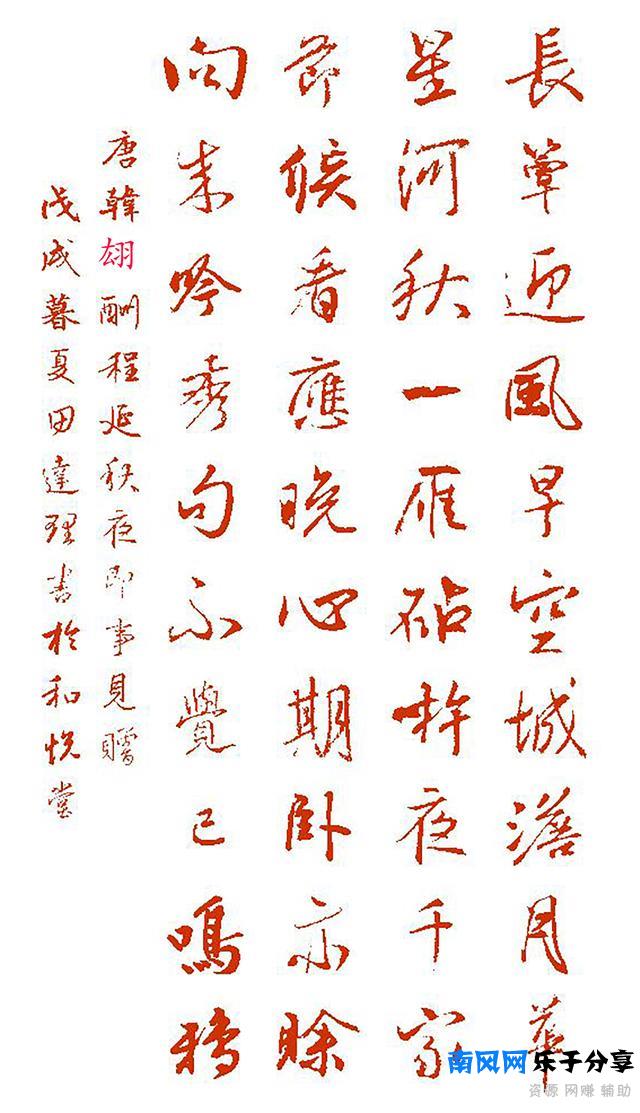 長簟迎風早空城澹月華
星河秋一雁砧杵夜千家
節候看應晚心期卧亦賒
向来吟秀句不覺已鳴鴉
唐韓翃酬程延秋夜即事見贈
戊戌暮夏田達理書於和悅堂
南风网 乐子分享
资源 网赚 辅助